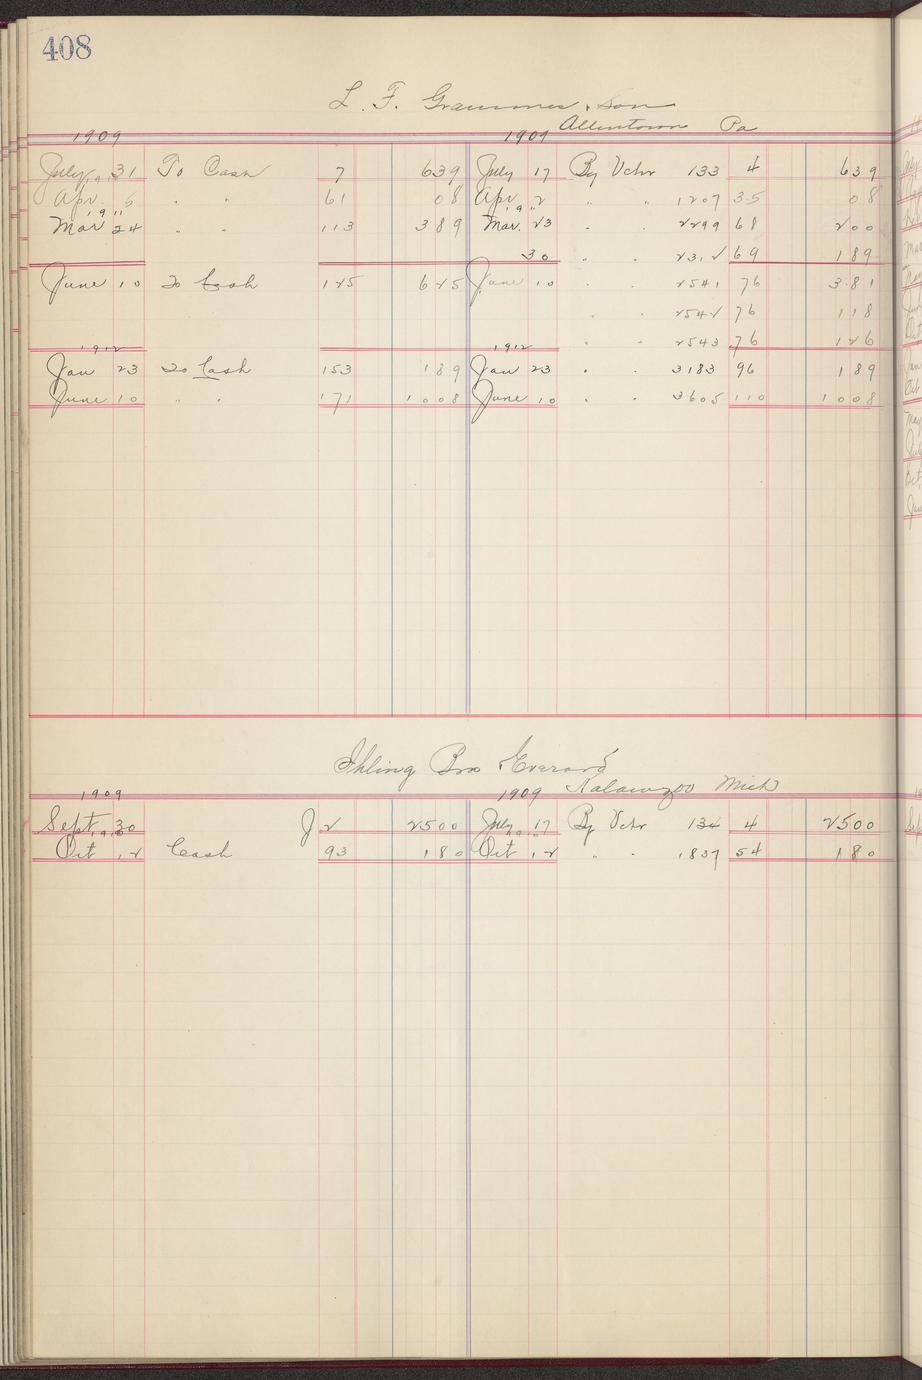 408
L. F. Grammes & Son
Allentown Pa
1909 1909
July 31 To Cash 7 639 July 17 By Vchr 133 4 639
1910 1910
Apr. 5 " " 61 08 Apr. 2 " " 1207 35 08
1911 1911
Mar 24 " " 113 389 Mar. 23 " " 2299 68 200
30 " " 2312 69 189
June 10 To Cash 125 625 June 10 " " 2541 76 381
" " 2542 76 118
" " 2543 76 126
1912 1912
Jan 23 To Cash 153 189 Jan 23 " " 3183 96 189
June 10 " " 171 1008 June 10 " " 3605 110 1008
Ihling Bros Everard
Kalamazoo Mich
1909 1909
Sept. 30 J 2 2500 July 17 By Vchr 134 4 2500
1910 1910
Oct 12 Cash 93 180 Oct 12 " " 1837 54 180